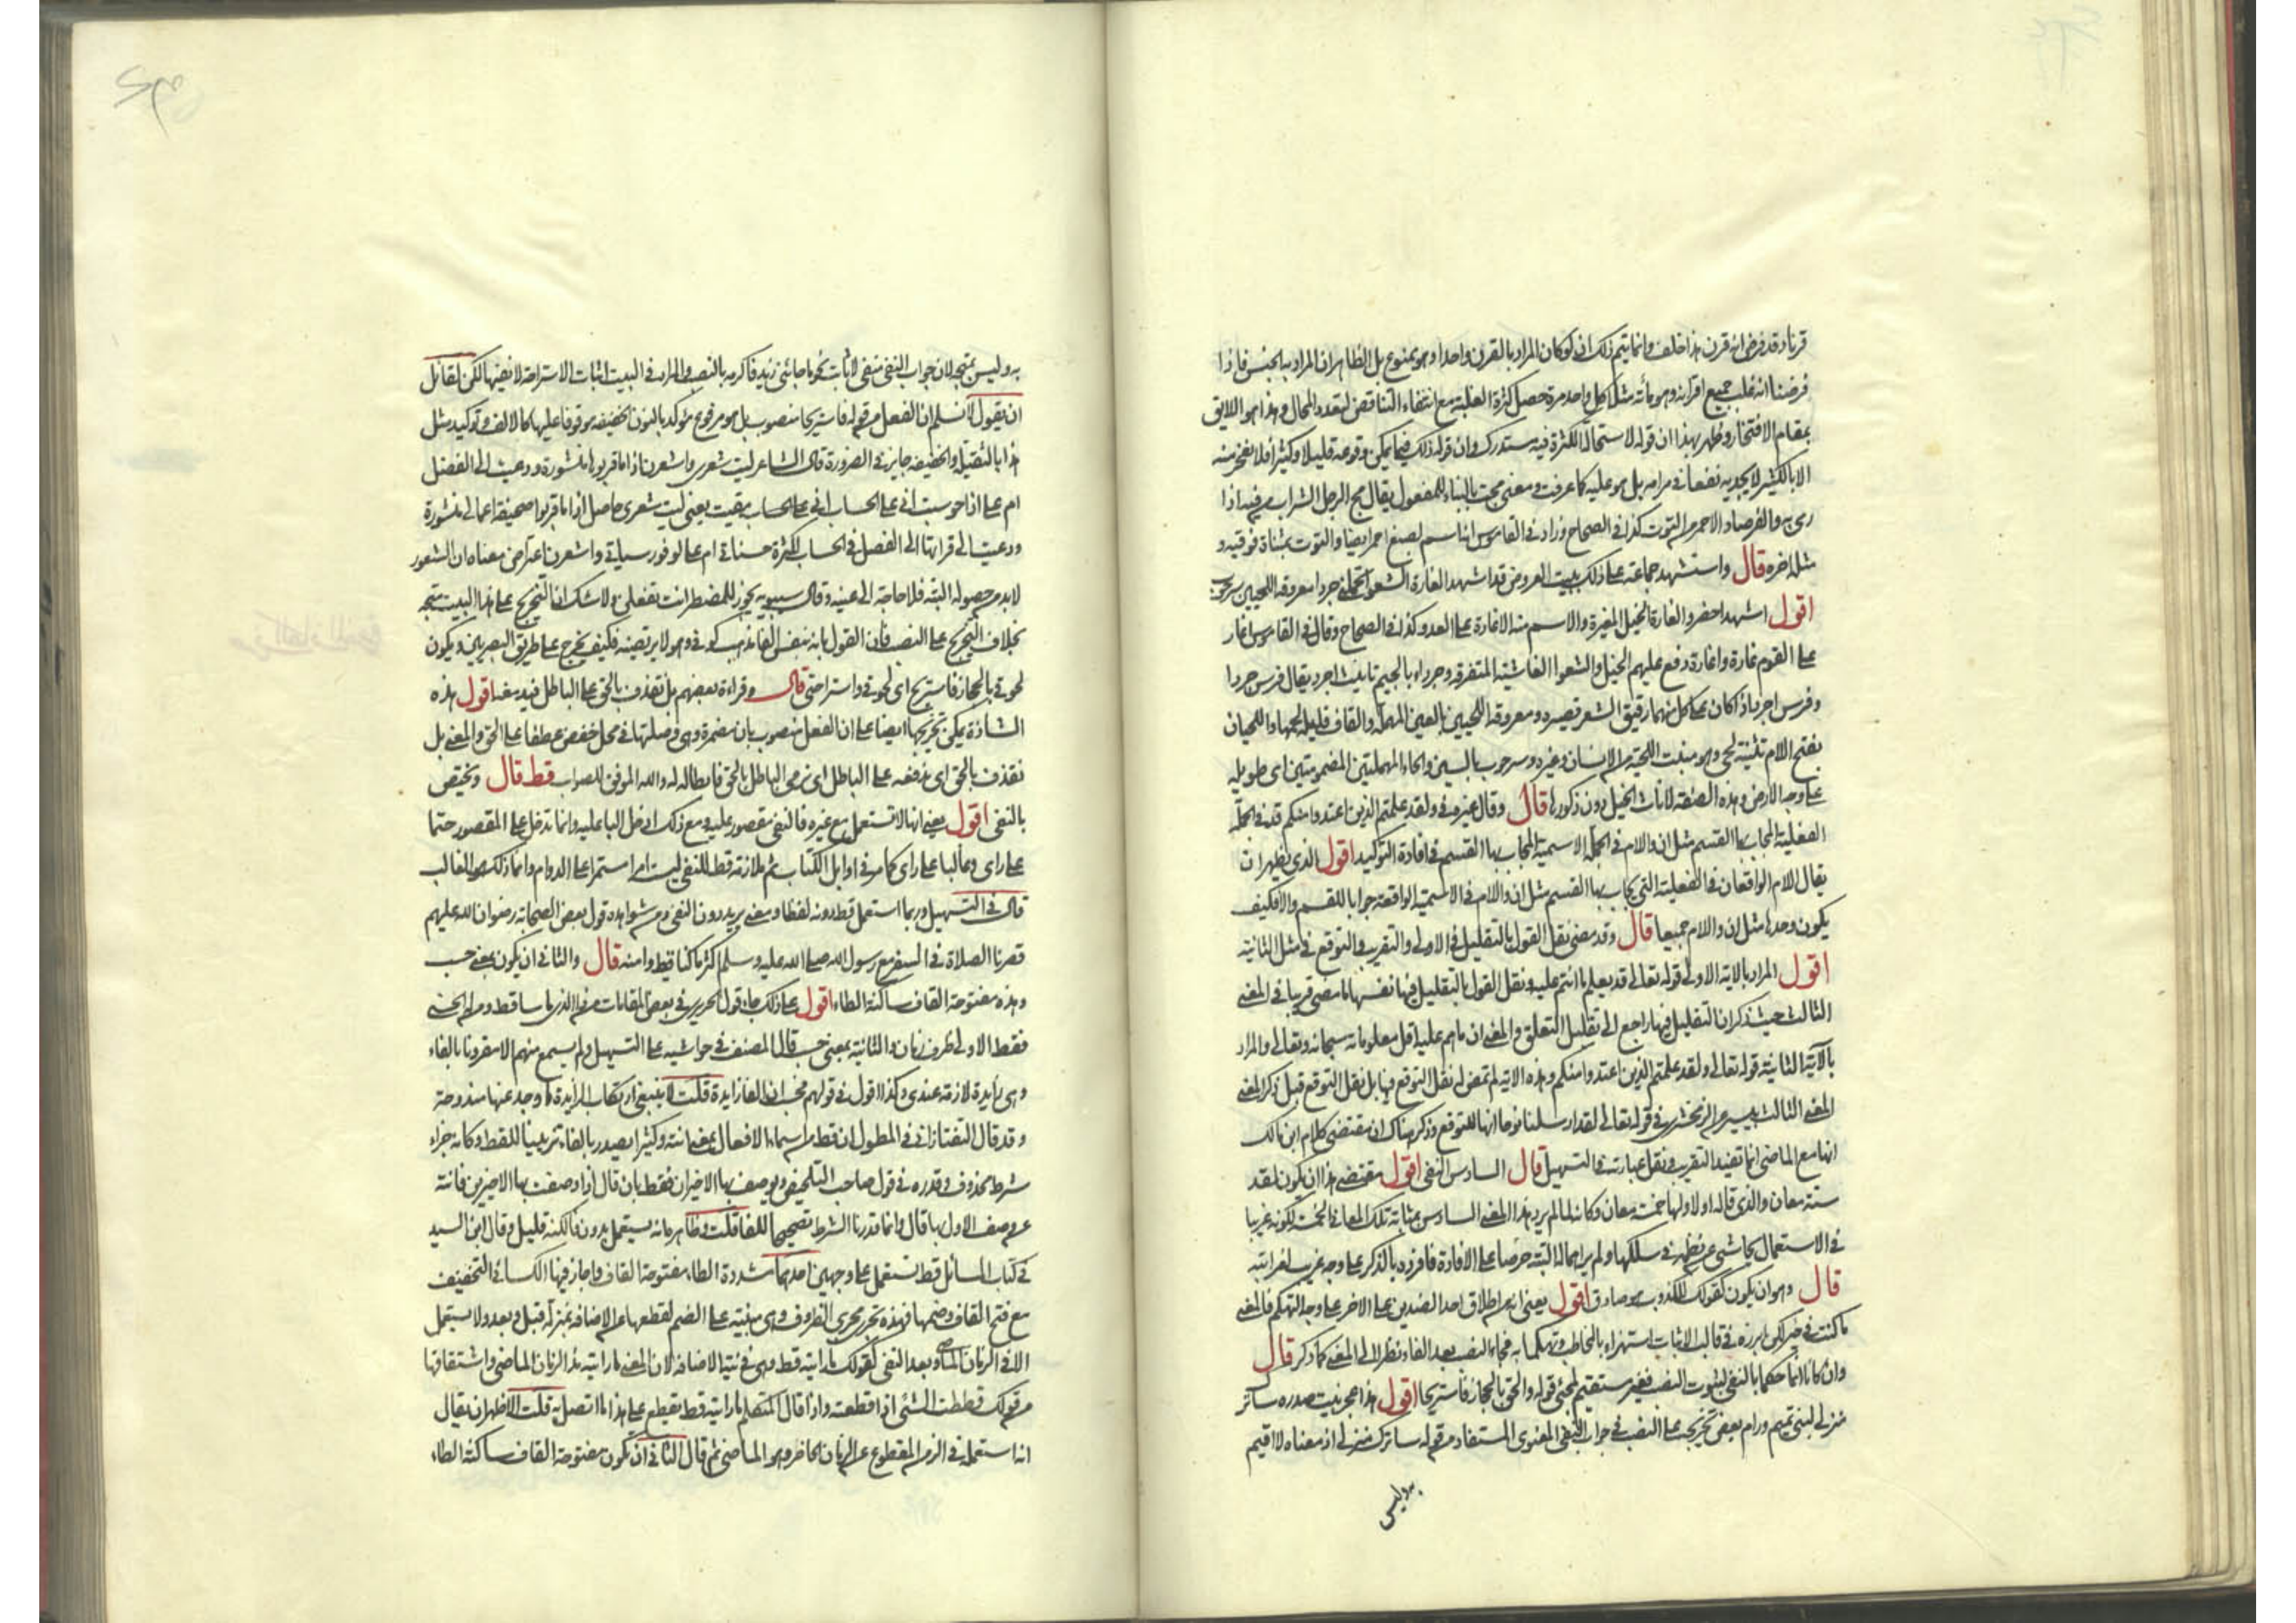 قرنا وقد فرض انه قرن هذا خلف وانما يتم ذلك ان لو كان المراد بالقرن واحدا وهو ممنوع بل الظاهر ان المراد به الجنس فاذا
فرضنا انه غلب جميع اقرانه وهو مائة مثلا كل واحد مرة حصل كثرة الغلبة مع انتفاء التناقض لتعدد المحال وهذا هو اللايق
بمقام الافتخار وظهر بهذا ان قوله لاستحالة الكثرة فيه مستدرك وان قوله ذلك فيما يمكن وقوعه قليلا وكثيرا فلا يفخر منه
الا بالكثير لا يجديه نفعا في مرامه بل هو عليه كما عرفت ومعنى مجت بالبناء للمفعول يقال مج الرجل الشراب من فيه اذا
رمى به والفرصاد الاحمر من التوت كذا في الصحاح وزاد في القاموس انه اسم لصبغ احمر ايضا والتوت بمثناة فوقية و
مثله اخره قال واستشهد جماعة على ذلك ببيت العروض قد اشهد الغارة الشعوا تحملني جردا معروقة اللحيين سرحوب
اقول اشهد احضر والغارة الخيل المغيرة والاسم منه الاغارة على العدو كذا في الصحاح وقال في القاموس اغار
على القوم غارة واغارة دفع عليهم الخيل والشعوا الفاشية المتفرقة وجرداء بالجيم تانيث اجرد يقال فرس جردا
وفرس اجرد اذا كان كل منهما رقيق الشعر قصيره ومعروقة اللحيين بالعين المهملة والقاف قليلة لحمهما واللحيان
بفتح اللام تثنية لحى وهو منبت اللحية من الانسان وغيره وسرحوب بالسين والحاء المهملتين المضمومتين اى طويله
على وجه الارض وهذه الصفة لاناث الخيل دون ذكورها قال وقال غيره في ولقد علمتم الذين اعتدوا منكم قد في الجملة
الفعلية المجاب بها القسم مثل ان واللام في الجملة الاسمية المجاب بها القسم في افادة التوكيد اقول الذي يظهر ان
يقال اللام الواقعان في الفعلية التي يجاب بها القسم مثل ان واللام في الاسمية الواقعة جوابا للقسم والا فكيف
يكون وحدها مثل ان واللام جميعا قال وقد مضى نقل القول بالتقليل في الاولى والتقريب والتوقع في مثل الثانية
اقول المراد بالاية الاولى قوله تعالى قد يعلم ما انتم عليه ونقل القول بالتقليل فيها نفسها ما مضى قريبا في المعنى
الثالث حيث ذكر ان التقليل فيها راجع الى تقليل المتعلق والمعنى ان ما هم عليه اقل معلوماته سبحانه وتعالى والمراد
بالآية الثانية قوله تعالى ولقد علمتم الذين اعتدوا منكم وهذه الاية لم يمض له نقل التوقع فيها بل نقل التوقع قبل ذكر المعنى
المعنى الثالث بيسير عن الزمخشري في قوله تعالى لقد ارسلنا نوحا انها للتوقع وذكر هناك ان مقتضى كلام ابن مالك
انها مع الماضي انما تفيد التقريب ونقل عبارته في التسهيل قال السادس النفي اقول مقتضى هذا ان يكون لقد
ستة معان والذي قاله اولا ولها خمسة معان وكانه لما لم يرد هذا المعنى السادس بمثابة تلك المعاني الخمسة لكونه غريبا
في الاستعمال تحاشى عن نظمه في سلكها ولم ير اهماله البتة حرصا على الافادة فافرده بالذكر على وجه غريب لغرابته
قال وهو ان يكون كقولك للكذوب هو صادق اقول يعني انه من اطلاق احد الضدين على الاخر على وجه التهكم فالمعنى
ما كنت في خير لكن ابرزه في قالب الاثبات استهزاء بالمخاطب وتهكما به فجاء النصب بعد الفاء نظرا الى المعنى كما ذكر قال
وان كانا انما حكما بالنفي لثبوت النصب فغير مستقيم لمجئ قوله والحق بالحجاز فاستريحا اقول هذا عجز بيت صدره ساترك
منزلي لبني تميم ورام بعض تخريجه على النصب في جواب النفي المعنوي المستفاد من قوله ساترك منزلي اذ معناه لا اقيم
به وليس
به وليس بمتجه لان جواب النفي منفي لا ثابت نحو ما جائني زيد فاكرمه بالنصب والمراد في البيت اثبات الاستراحة لا نفيها لكن لقائل
ان يقول لا نسلم ان الفعل من قوله فاستريحا منصوب بل هو مرفوع مؤكد بالنون الخفيفة موقوفا عليها كالالف وتوكيد مثل
هذا بالثقيلة والخفيفة جايز في الضرورة قال الشاعر ليت شعري واشعرن اذا ما قربوها منشورة ودعيت الى الفضل
ام على اذا حوسبت اني على الحساب مقيت يعني ليت شعري حاصل اذا ما قربوا صحيفة اعمالي منشورة
ودعيت الى قراءتها الى الفضل في الحساب لكثرة حسناتي ام على لوفور سياتي واشعرن اعتراض معناه ان الشعور
لا بد من حصوله البتة فلا حاجة الى عينه وقال سيبويه يجوز للمضطر انت تفعلن ولا شك ان التخريج على هذا البيت متجه
بخلاف التخريج على النصب فان القول بانه بنفس الفا مذهب كوفي وهو لا يرتضيه فكيف يخرج على طريق البصريين ويكون
لحوقي بالحجاز فاستريح اى لحوقي واستراحتي قال وقراءة بعضهم بل نقذف بالحق على الباطل فيدمغه اقول هذه
الشاذة يمكن تخريجها ايضا على ان الفعل منصوب بان مضمرة وهي وصلتها في محل خفض عطفا على الحق والمعنى بل
نقذف بالحق اى ندفعه على الباطل اى نرمي الباطل بالحق فابطاله له والله الموفق للصواب قط قال وتختص
بالنفي اقول يعني انها لا تستعمل مع غيره فالنفي مقصور عليه ومع ذلك ادخل البا عليه وانما تدخل على المقصور حتما
على راى وغالبا على راى كما مر في اوايل الكتاب ثم ملازمة قط للنفي ليست امرا مستمرا على الدوام وانما ذلك هو الغالب
قال في التسهيل وربما استعمل قط دونه لفظا ومعنى يريد دون النفي ومن شواهده قول بعض الصحابة رضوان الله عليهم
قصرنا الصلاة في السفر مع رسول الله صلى الله عليه وسلم اكثر ما كنا قط وامنه قال والثاني ان يكون بمعنى حسب
وهذه مفتوحة القاف ساكنة الطاء اقول على ذلك جاء قول الحريري في بعض المقامات
فقط الاولى ظرف زمان والثانية بمعنى حسب قال المصنف في حواشيه على التسهيل ولم يسمع منهم الا مقرونا بالفاء
وهي زايدة لازمة عندي وكذا اقول في قولهم فحسب ان الفا زايدة قلت لا ينبغي ارتكاب الزايدة ما وجد عنها مندوحة
وقد قال التفتازاني في المطول ان قط من اسماء الافعال بمعنى انته وكثيرا يصدر بالفاء تزيينا للفظ وكانه جزاء
شرط محذوف وقدره في قول صاحب التلخيص ويوصف بها الاخيران فقط بان قال اذا وصفت بها الاخيرين فانته
عن وصف الاول بها قال وانما قدرنا الشرط تصحيحا للفا قلت وظاهر انه يستعمل بدون فا لكنه قليل وقال ابن السيد
في كتاب المسائل قط تستعمل على وجهين احدهما مشددة الطاء مفتوحة القاف واجاز فيها الكسائي التخفيف
مع فتح القاف وضمها فهذه تجري مجرى الظروف وهي مبنية على الضم لقطعها عن الاضافة بمنزلة قبل وبعد ولا يستعمل
الا في الزمان الماضي وبعد النفي كقولك ما رايته قط وهي في نية الاضافة لان المعنى ما رايته مذ الزمان الماضي واشتقاقها
من قولك قططت الشئ اذا قطعته واذا قال المتكلم ما رايته قط يقطع على هذا ما اتصل به قلت الاظهر ان يقال
انه استعمله في الزمن المقطوع عن الزمان الحاضر وهو الماضي ثم قال الثاني ان يكون مفتوحة القاف ساكنة الطاء